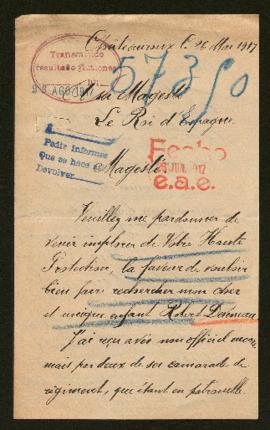 Châteauroux le 26 Mai 1917
Transmitido
resultado gestiones
AGO 1917
573/0
Sa Majesté
Le Roi d'Espagne.
Pedir informes
que se hace el
Devolver
Fecho
JUN. 1917
e.a.e.
Majesté
Veuillez me pardonner de
venir implorer de Votre Haute
Protection, la faveur de vouloir
bien faire rechercher mon cher
et unique enfant Robert
J'ai reçu avis non officiel
mais par deux de ses camarade de
régiment, que étant en patrouille